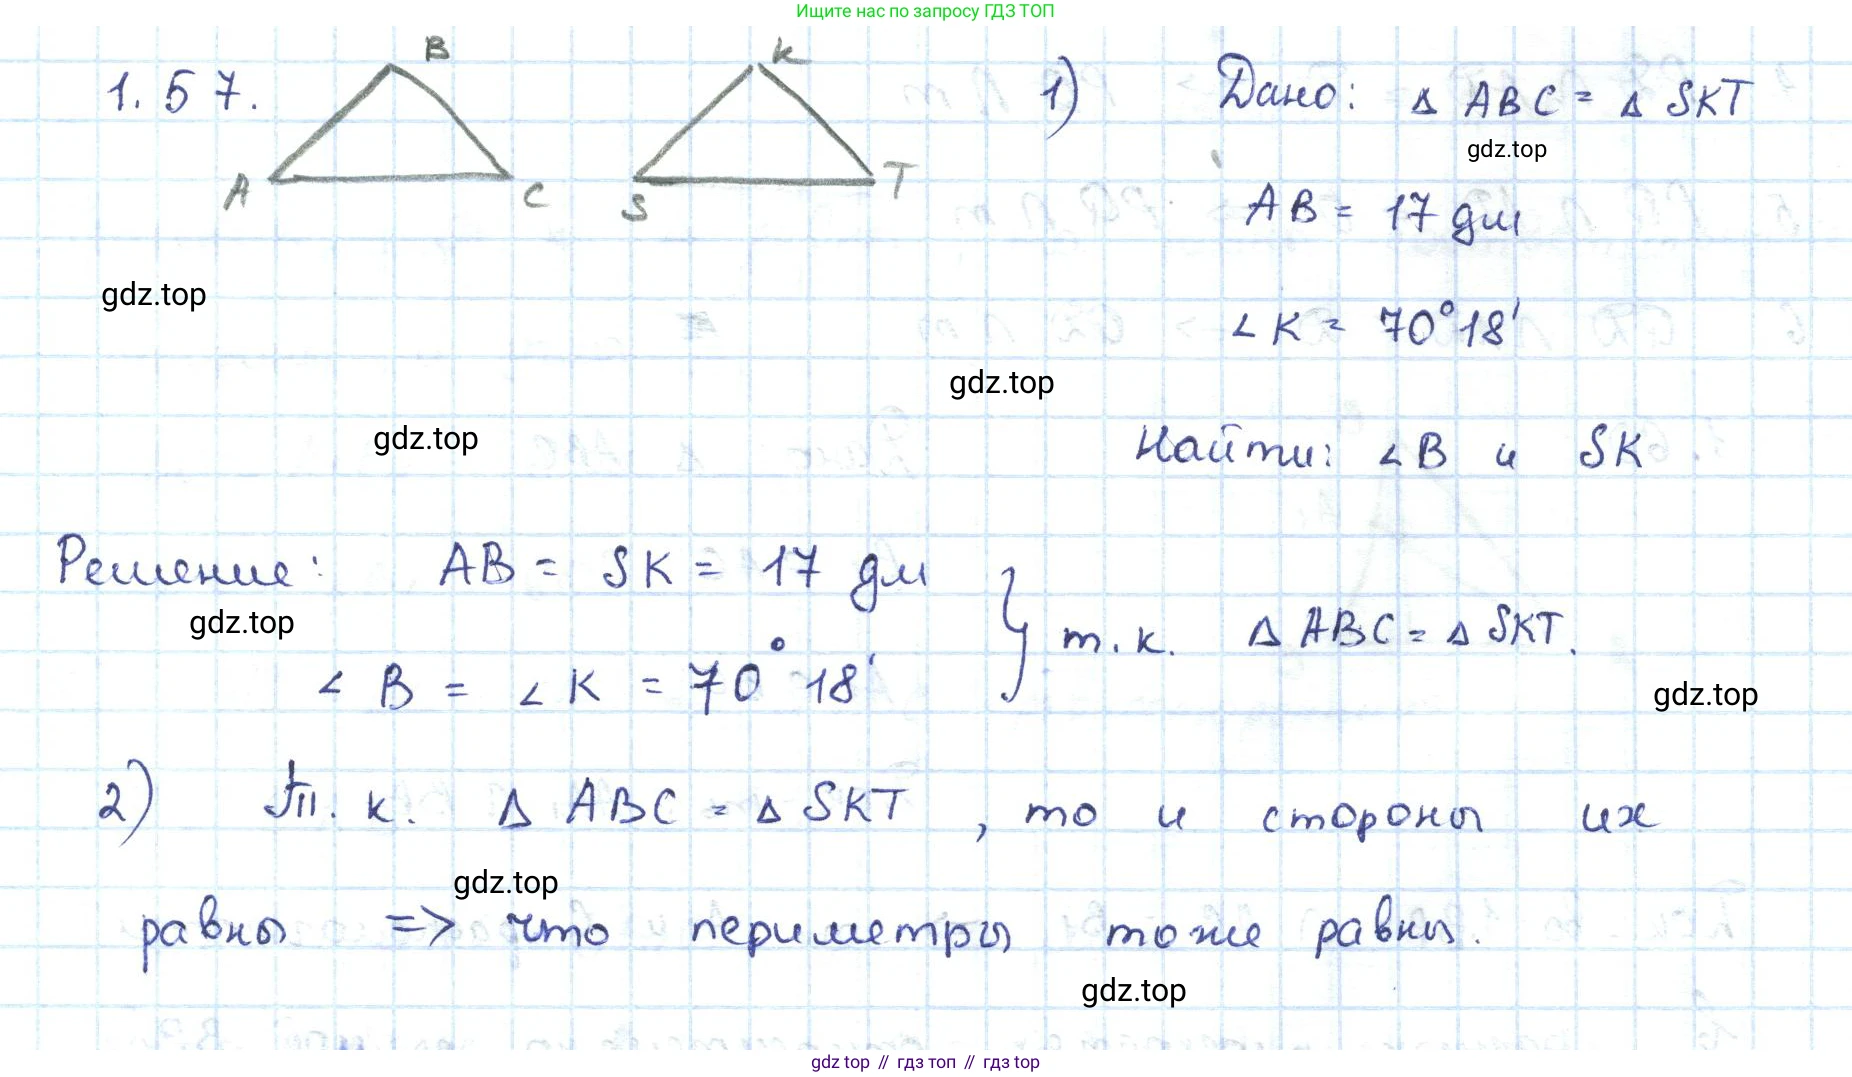 Ищите нас по запросу ГДЗ ТОП
1.57.
B
A
C
K
S
T
1) Дано: Δ ABC = Δ SKT
gdz.top
AB = 17 дм
gdz.top
∠K = 70°18'
gdz.top
gdz.top
Найти: ∠B и SK
Решение: AB = SK = 17 дм
gdz.top
} т.к. Δ ABC = Δ SKT.
∠B = ∠K = 70°18'
gdz.top
2) Т.к. Δ ABC = Δ SKT, то и стороны их
gdz.top
равны => что периметры тоже равны.
gdz.top
gdz top // гдз топ // гдз top